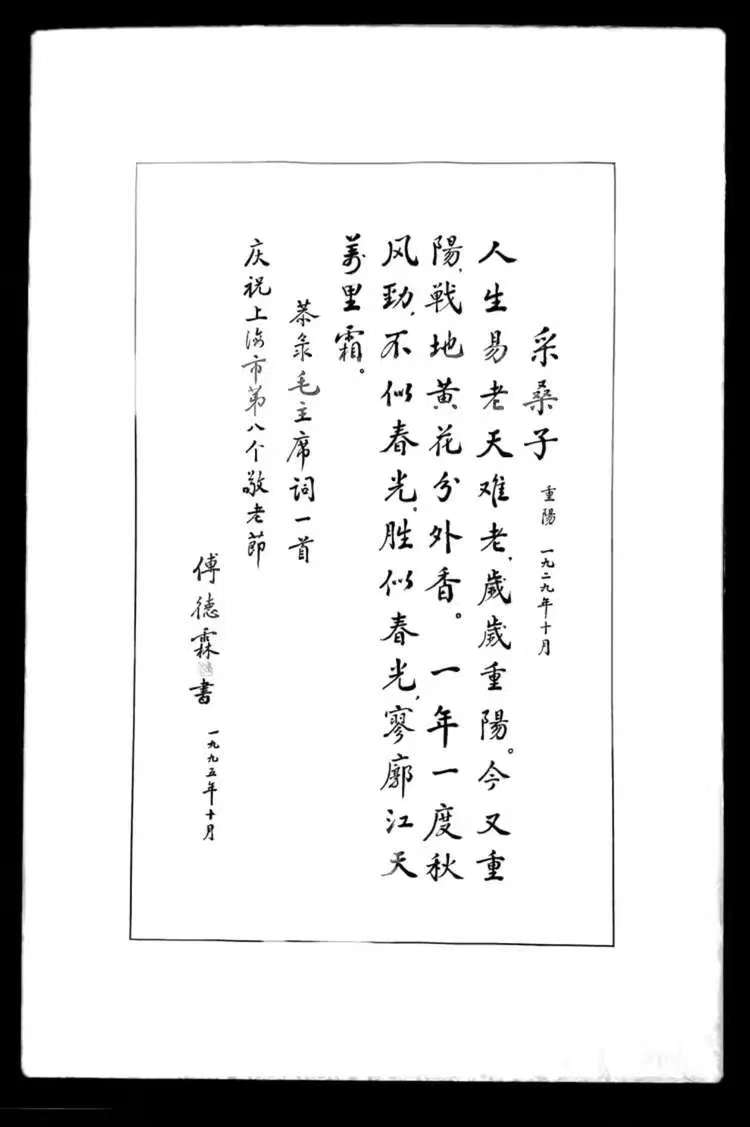 采桑子 重陽 一九二九年十月
人生易老天难老，歲歲重陽。今又重
陽，戦地黄花分外香。一年一度秋
风勁，不似春光，胜似春光，寥廓江天
萬里霜。
恭录毛主席词一首
庆祝上海市第八个敬老節
傅德霖書 一九九五年十月